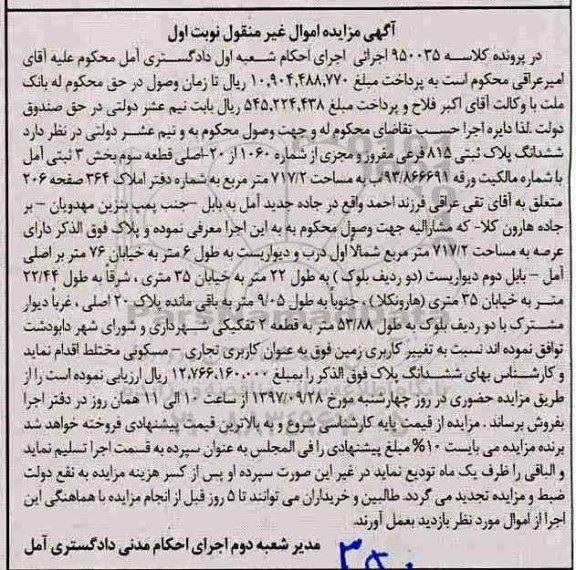 آگهی مزایده اموال غیر منقول نوبت اول
در پرونده کلاسه ۹۵۰۰۳۵ اجرائی اجرای احکام شعبه اول دادگستری آمل محکوم علیه آقای
امیرعراقی محکوم است به پرداخت مبلغ ۱۰,۹۰۴,۴۸۸,۷۷۰ ریال تا زمان وصول در حق محکوم له بانک
ملت با وکالت آقای اکبر فلاح و پرداخت مبلغ ۵۴۵,۲۲۴,۴۳۸ ریال بابت نیم عشر دولتی در حق صندوق
دولت .لذا دایره اجرا حسب تقاضای محکوم له و جهت وصول محکوم به و نیم عشر دولتی در نظر دارد
ششدانگ پلاک ثبتی ۸۱۸ فرعی مفروز و مجزی از شماره ۱۰۶۰ از ۲۰-اصلی قطعه سوم بخش ۳ ثبتی آمل
با شماره مالکیت ورقه ۹۳/۸۶۶۶۹۱ب به مساحت ۷۱۷/۲ متر مربع به شماره دفتر املاک ۳۶۴ صفحه ۲۰۶
متعلق به آقای تقی عراقی فرزند احمد واقع در جاده جدید آمل به بابل -جنب پمپ بنزین مهدویان - بر
جاده هارون کلا- که مشارالیه جهت وصول محکوم به به این اجرا معرفی نموده و پلاک فوق الذکر دارای
عرصه به مساحت ۷۱۷/۲ متر مربع شمالا اول درب و دیواریست به طول ۶ متر به خیابان ۷۶ متر بر اصلی
آمل - بابل دوم دیواریست (دو ردیف بلوک ) به طول ۲۲ متر به خیابان ۳۵ متری ، شرقاً به طول ۲۲/۴۴
متر به خیابان ۳۵ متری (هارونکلا) ، جنوباً به طول ۹/۰۵ متر به باقی مانده پلاک ۲۰ اصلی ، غرباً دیوار
مشترک با دو ردیف بلوک به طول ۵۳/۸۸ متر به قطعه ۲ تفکیکی شهرداری و شورای شهر دابودشت
توافق نموده اند نسبت به تغییر کاربری زمین فوق به عنوان کاربری تجاری - مسکونی مختلط اقدام نماید
و کارشناس بهای ششدانگ پلاک فوق الذکر را بمبلغ ۱۲,۷۶۶,۱۶۰,۰۰۰ ریال ارزیابی نموده است را از
طریق مزایده حضوری در روز چهارشنبه مورخ ۱۳۹۷/۰۹/۲۸ از ساعت ۱۰ الی ۱۱ همان روز در دفتر اجرا
بفروش برساند . مزایده از قیمت پایه کارشناسی شروع و به بالاترین قیمت پیشنهادی فروخته خواهد شد
برنده مزایده می بایست ۱۰% مبلغ پیشنهادی را فی المجلس به عنوان سپرده به قسمت اجرا تسلیم نماید
و الباقی را ظرف یک ماه تودیع نماید در غیر این صورت سپرده او پس از کسر هزینه مزایده به نفع دولت
ضبط و مزایده تجدید می گردد. طالبین و خریداران می توانند تا ۵ روز قبل از انجام مزایده با هماهنگی این
اجرا از اموال مورد نظر بازدید بعمل آورند.
مدیر شعبه دوم اجرای احکام مدنی دادگستری آمل